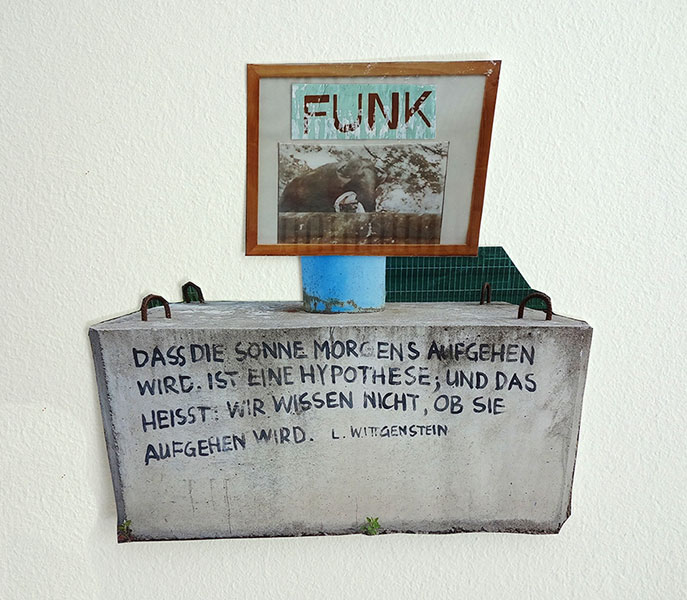 FUNK
DASS DIE SONNE MORGENS AUFGEHEN
WIRD. IST EINE HYPOTHESE; UND DAS
HEISST: WIR WISSEN NICHT, OB SIE
AUFGEHEN WIRD. L. WITTGENSTEIN